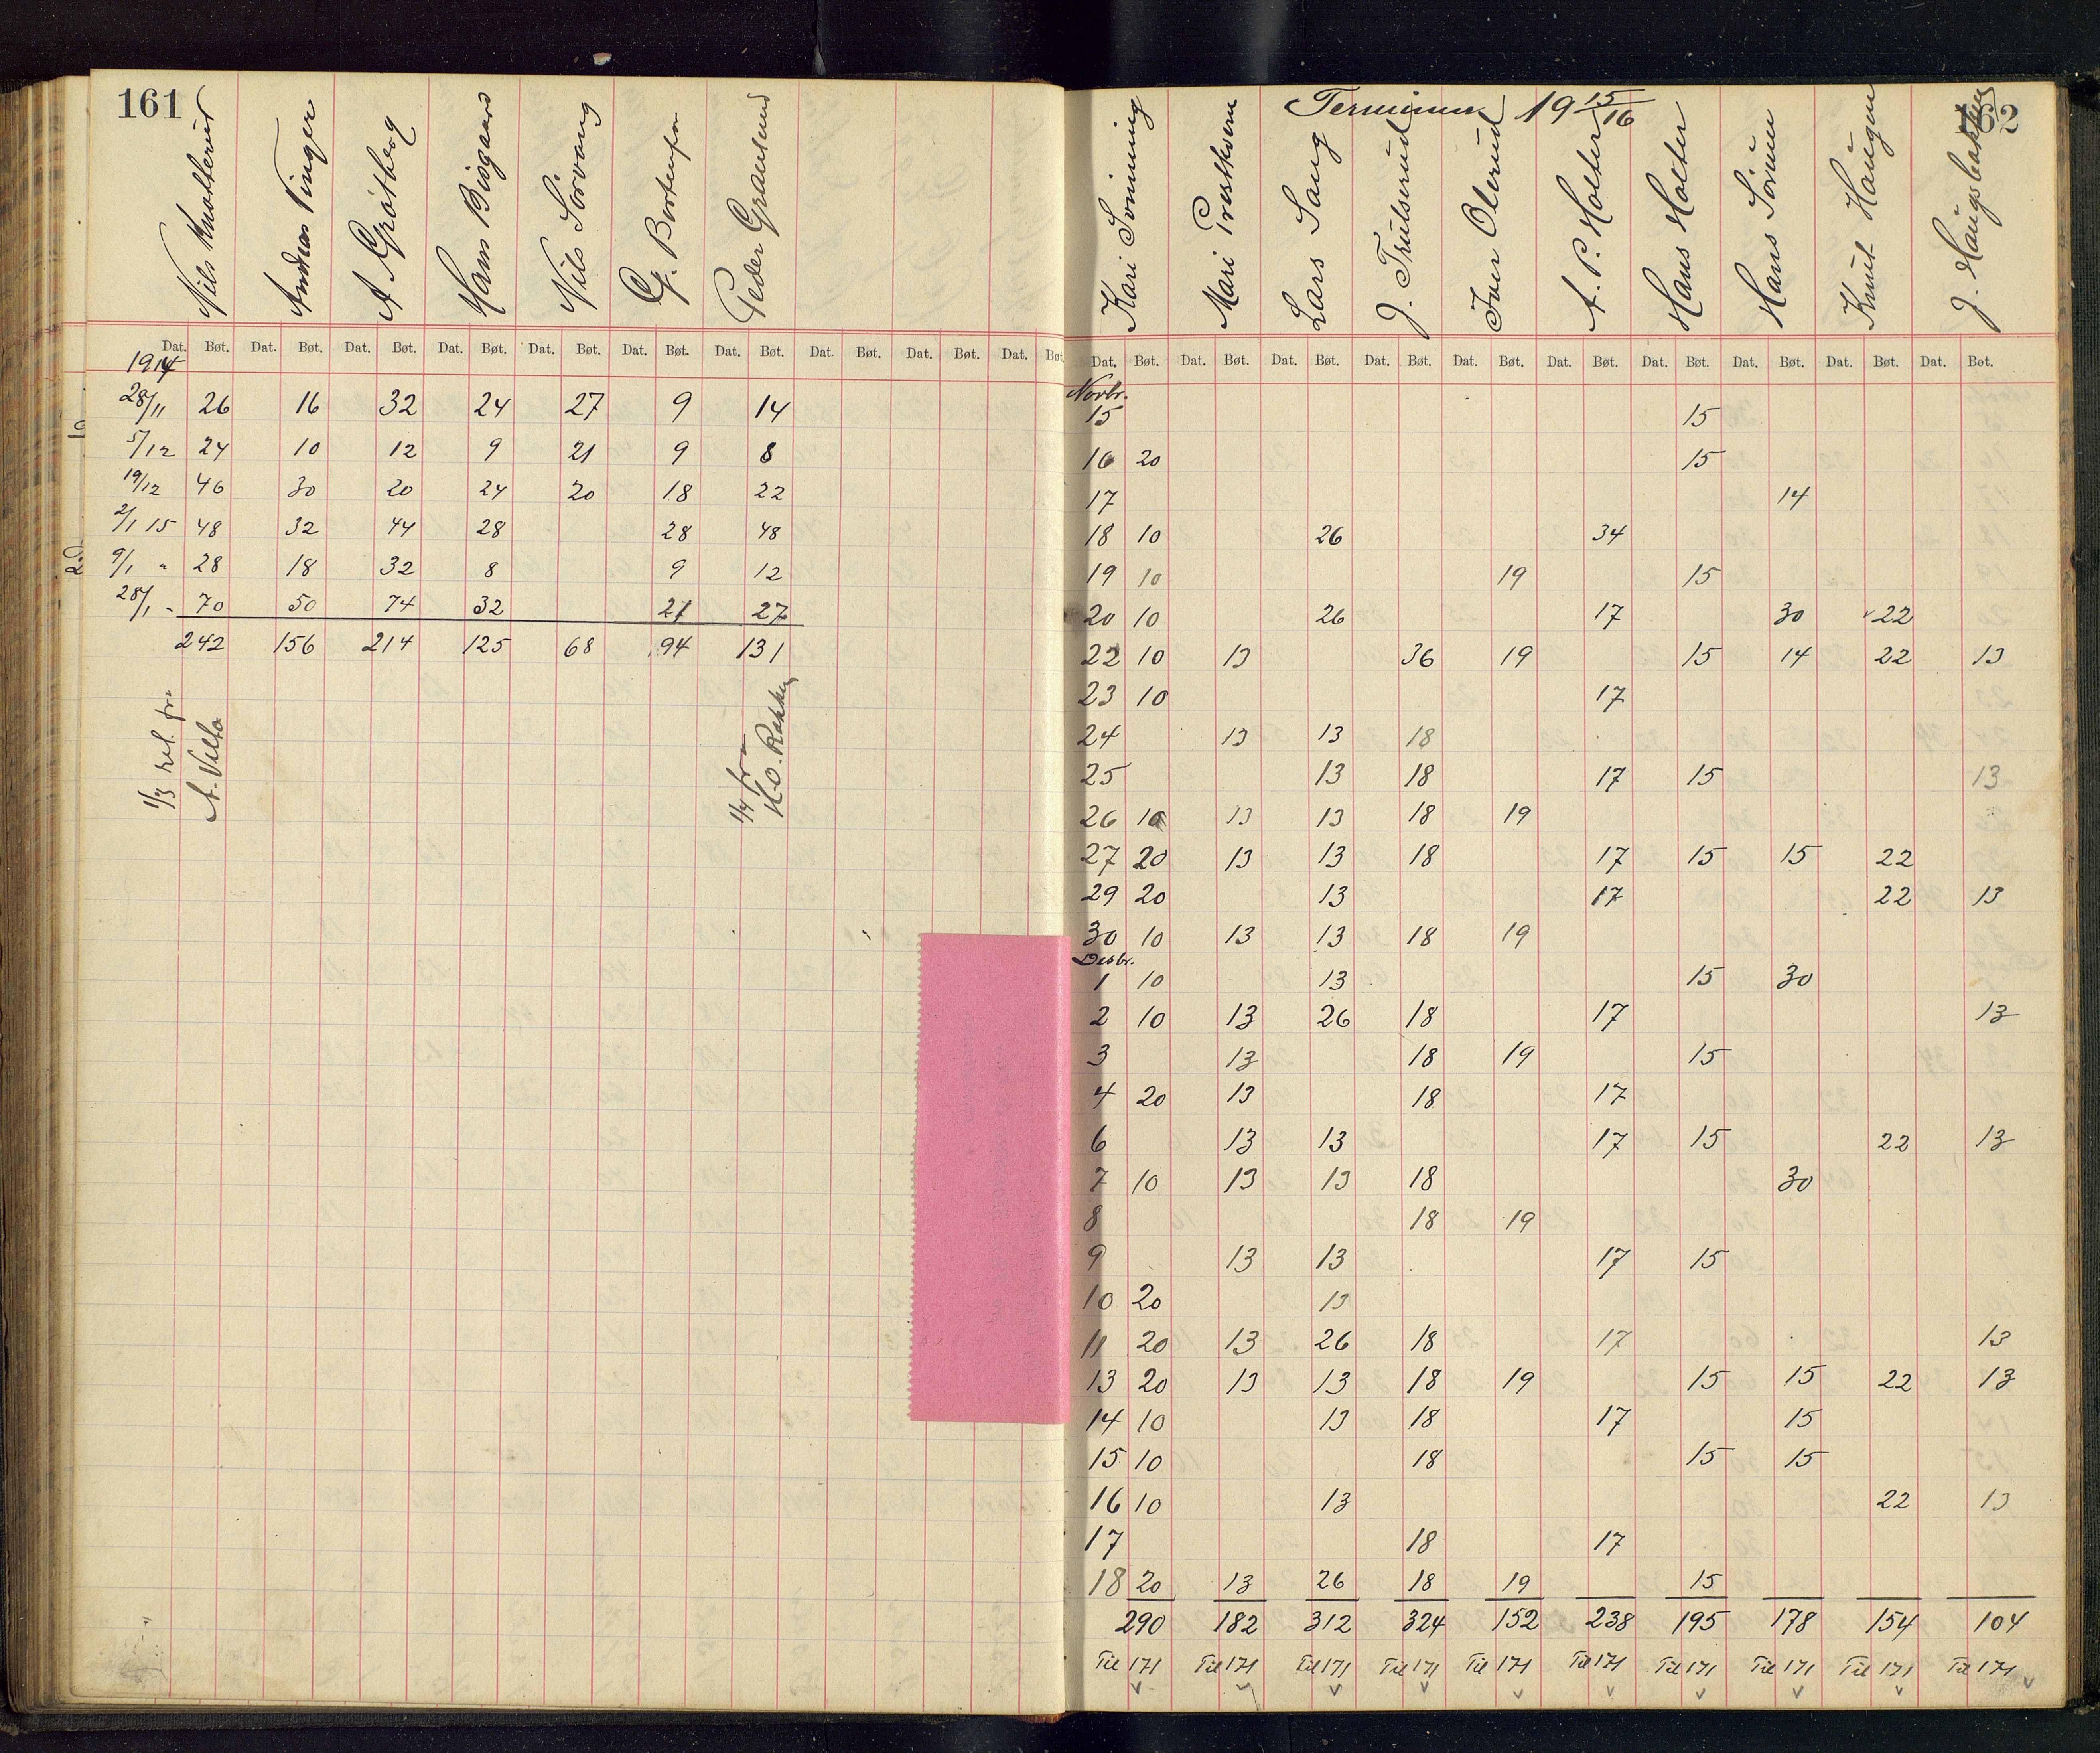 161
Nils Knatterud
Andreas Finger
A. Grøtberg
Hans Bisgaard
Nils Sørvang
G. Bortenfor
Peder Granerud
Dat. Bøt. Dat. Bøt. Dat. Bøt. Dat. Bøt. Dat. Bøt. Dat. Bøt. Dat. Bøt. Dat. Bøt. Dat. Bøt. Dat. Bøt.
1914
28/11 26 16 32 24 27 9 14
5/12 24 10 12 9 21 9 8
19/12 46 30 20 24 20 18 22
2/1 15 48 32 44 28 28 48
9/1 " 28 18 32 8 9 12
28/1 " 70 50 74 32 21 27
242 156 214 125 68 94 131
A. Velta
H.O. Rakken
Terminen 19 15/16
162
Kari Svinning
Mari Prestksern
Lars Saug
J. Trulserud
Iver Olerud
A. P. Holter
Hans Holter
Hans Sörum
Knut Haugen
J. Haugsbakken
Dat. Bøt. Dat. Bøt. Dat. Bøt. Dat. Bøt. Dat. Bøt. Dat. Bøt. Dat. Bøt. Dat. Bøt. Dat. Bøt. Dat. Bøt.
Novbr.
15 15
16 20 15
17 14
18 10 26 34
19 10 19 15
20 10 26 17 30 22
22 10 13 36 19 15 14 22 13
23 10 17
24 13 13 18
25 13 18 17 15 13
26 10 13 13 18 19
27 20 13 13 18 17 15 15 22
29 20 13 17 22 13
30 10 13 13 18 19
Desbr.
1 10 13 15 30
2 10 13 26 18 17 13
3 13 18 19 15
4 20 13 18 17
6 13 13 17 15 22 13
7 10 13 13 18 30
8 18 19
9 13 13 17 15
10 20 13
11 20 13 26 18 17 13
13 20 13 13 18 19 15 15 22 13
14 10 13 18 17 15
15 10 18 15 15
16 10 13 22 13
17 18 17
18 20 13 26 18 19 15
290 182 312 324 152 238 195 178 154 104
Til 171 Til 171 Til 171 Til 171 Til 171 Til 171 Til 171 Til 171 Til 171 Til 171